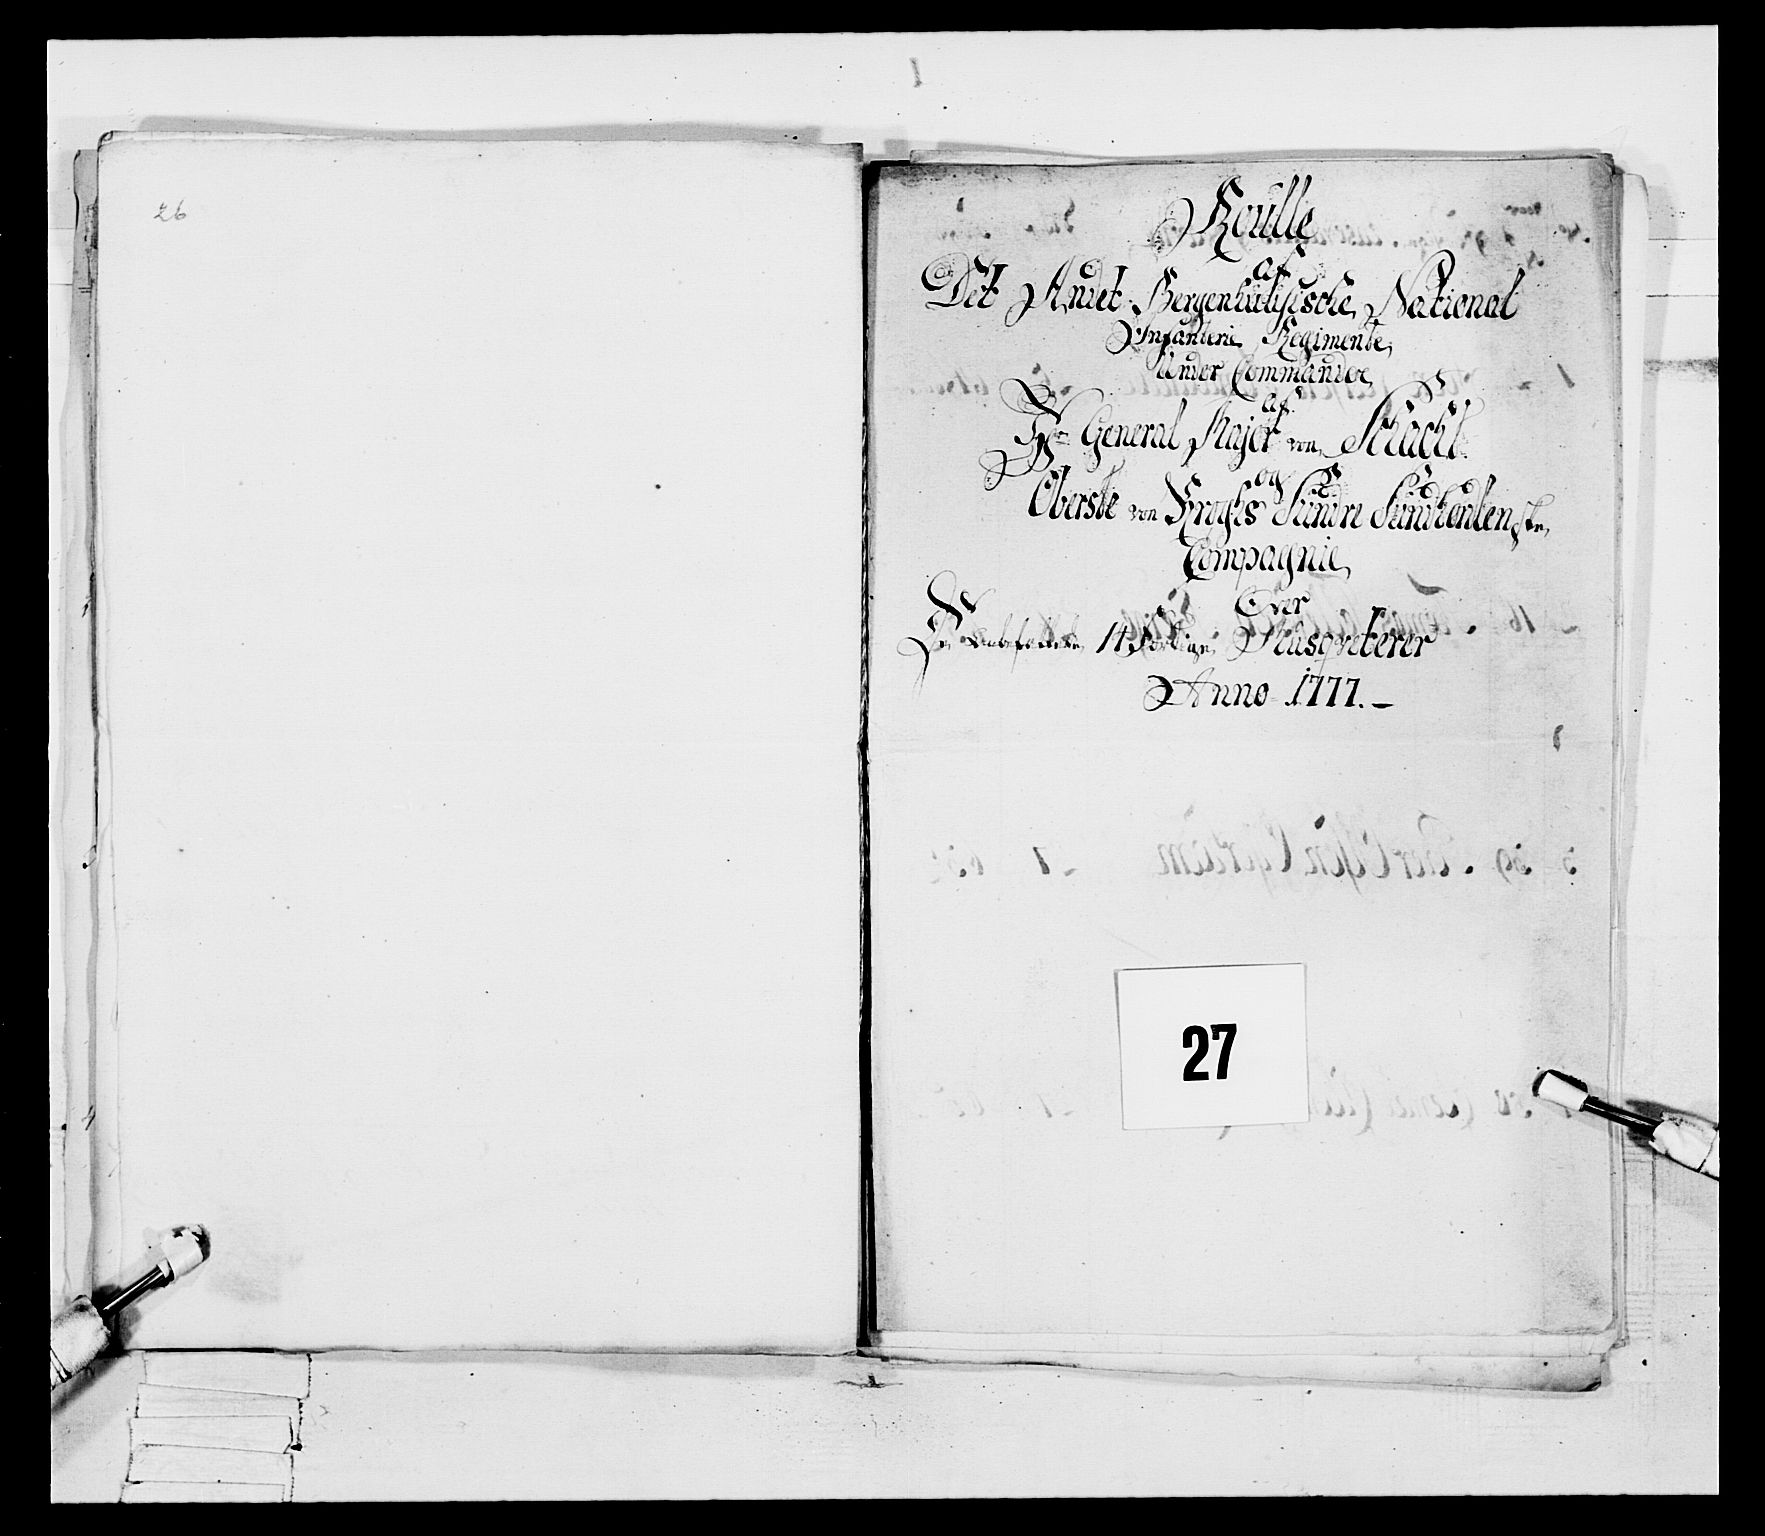 26
Roulle
af
Det Andet Bergenhuusische National
Infanterie Regimente,
Under Commando,
af
Hr General Major von Schacht
og
Oberste von Kroghs Sündre Sündhordlenske,
Compagnie,
Over
De 14 Musqveterer
Anno 1777.
27